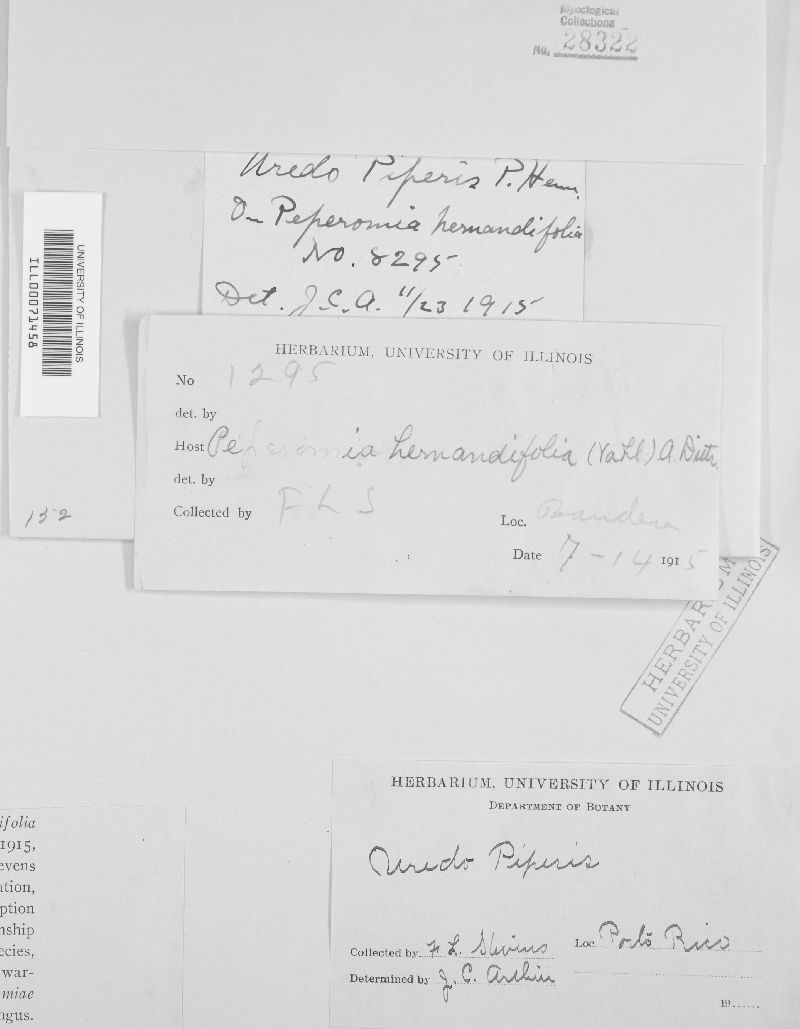 Mycological
Collections
No. 28322
Uredo Piperis P. Henn.
On Peperomia hernandifolia
No. 8295
Det. J.C.A. 11/23 1915
UNIVERSITY OF ILLINOIS
ILL00071458
HERBARIUM, UNIVERSITY OF ILLINOIS
No 1295
det. by
Host Peperomia hernandifolia (Vahl) A. Dietr.
det. by
Collected by F L S
Loc. Bandera
Date 7-14 1915
152
HERBARIUM
UNIVERSITY OF ILLINOIS
HERBARIUM, UNIVERSITY OF ILLINOIS
DEPARTMENT OF BOTANY
Uredo Piperis
Collected by F. L. Stevens Loc. Porto Rico
Determined by J. C. Arthur
19......
ifolia
1915,
evens
ation,
ption
nship
ecies,
war-
miae
ngus.